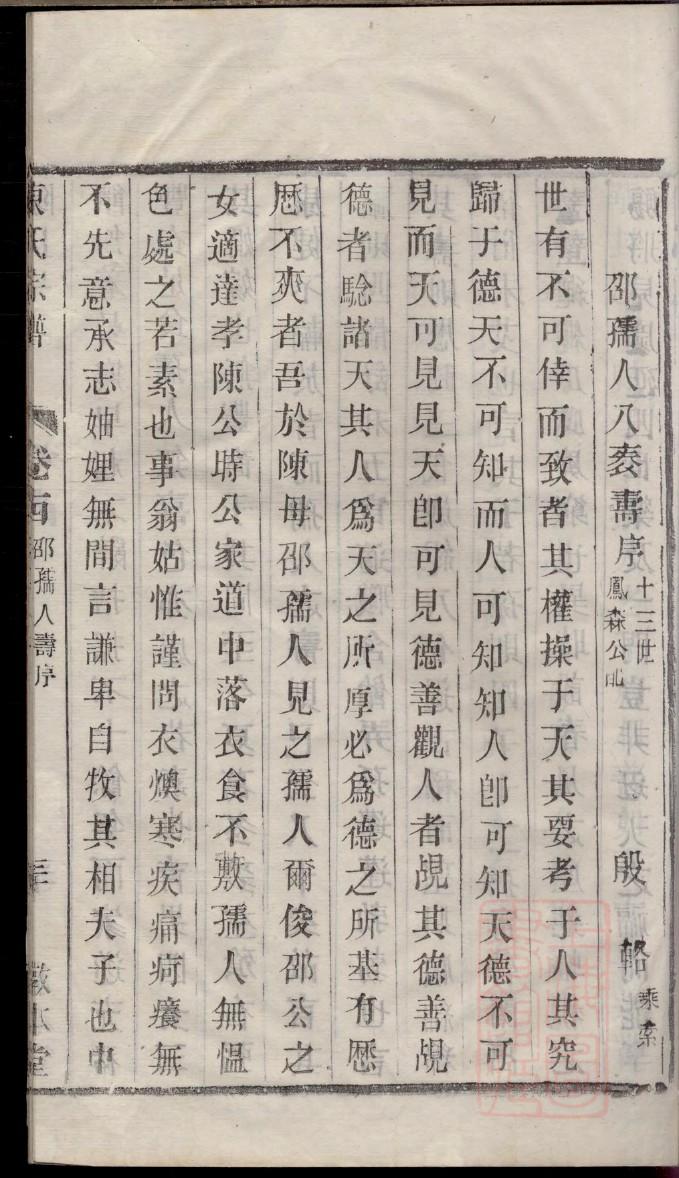 邵孺人八袠壽序 十三世鳳森公配 殷輅 乘素
世有不可倖而致者其權操于天其要考于人其究
歸于德天不可知而人可知知人卽可知天德不可
見而天可見見天卽可見德善觀人者覘其德善覘
德者騐諸天其人爲天之所厚必爲德之所基有歷
歷不爽者吾於陳母邵孺人見之孺人爾俊邵公之
女適達孝陳公時公家道中落衣食不敷孺人無慍
色處之若素也事翁姑惟謹問衣燠寒疾痛疴癢無
不先意承志妯娌無間言謙卑自牧其相夫子也中
陳氏宗譜 卷 邵孺人壽序 三 敦本堂